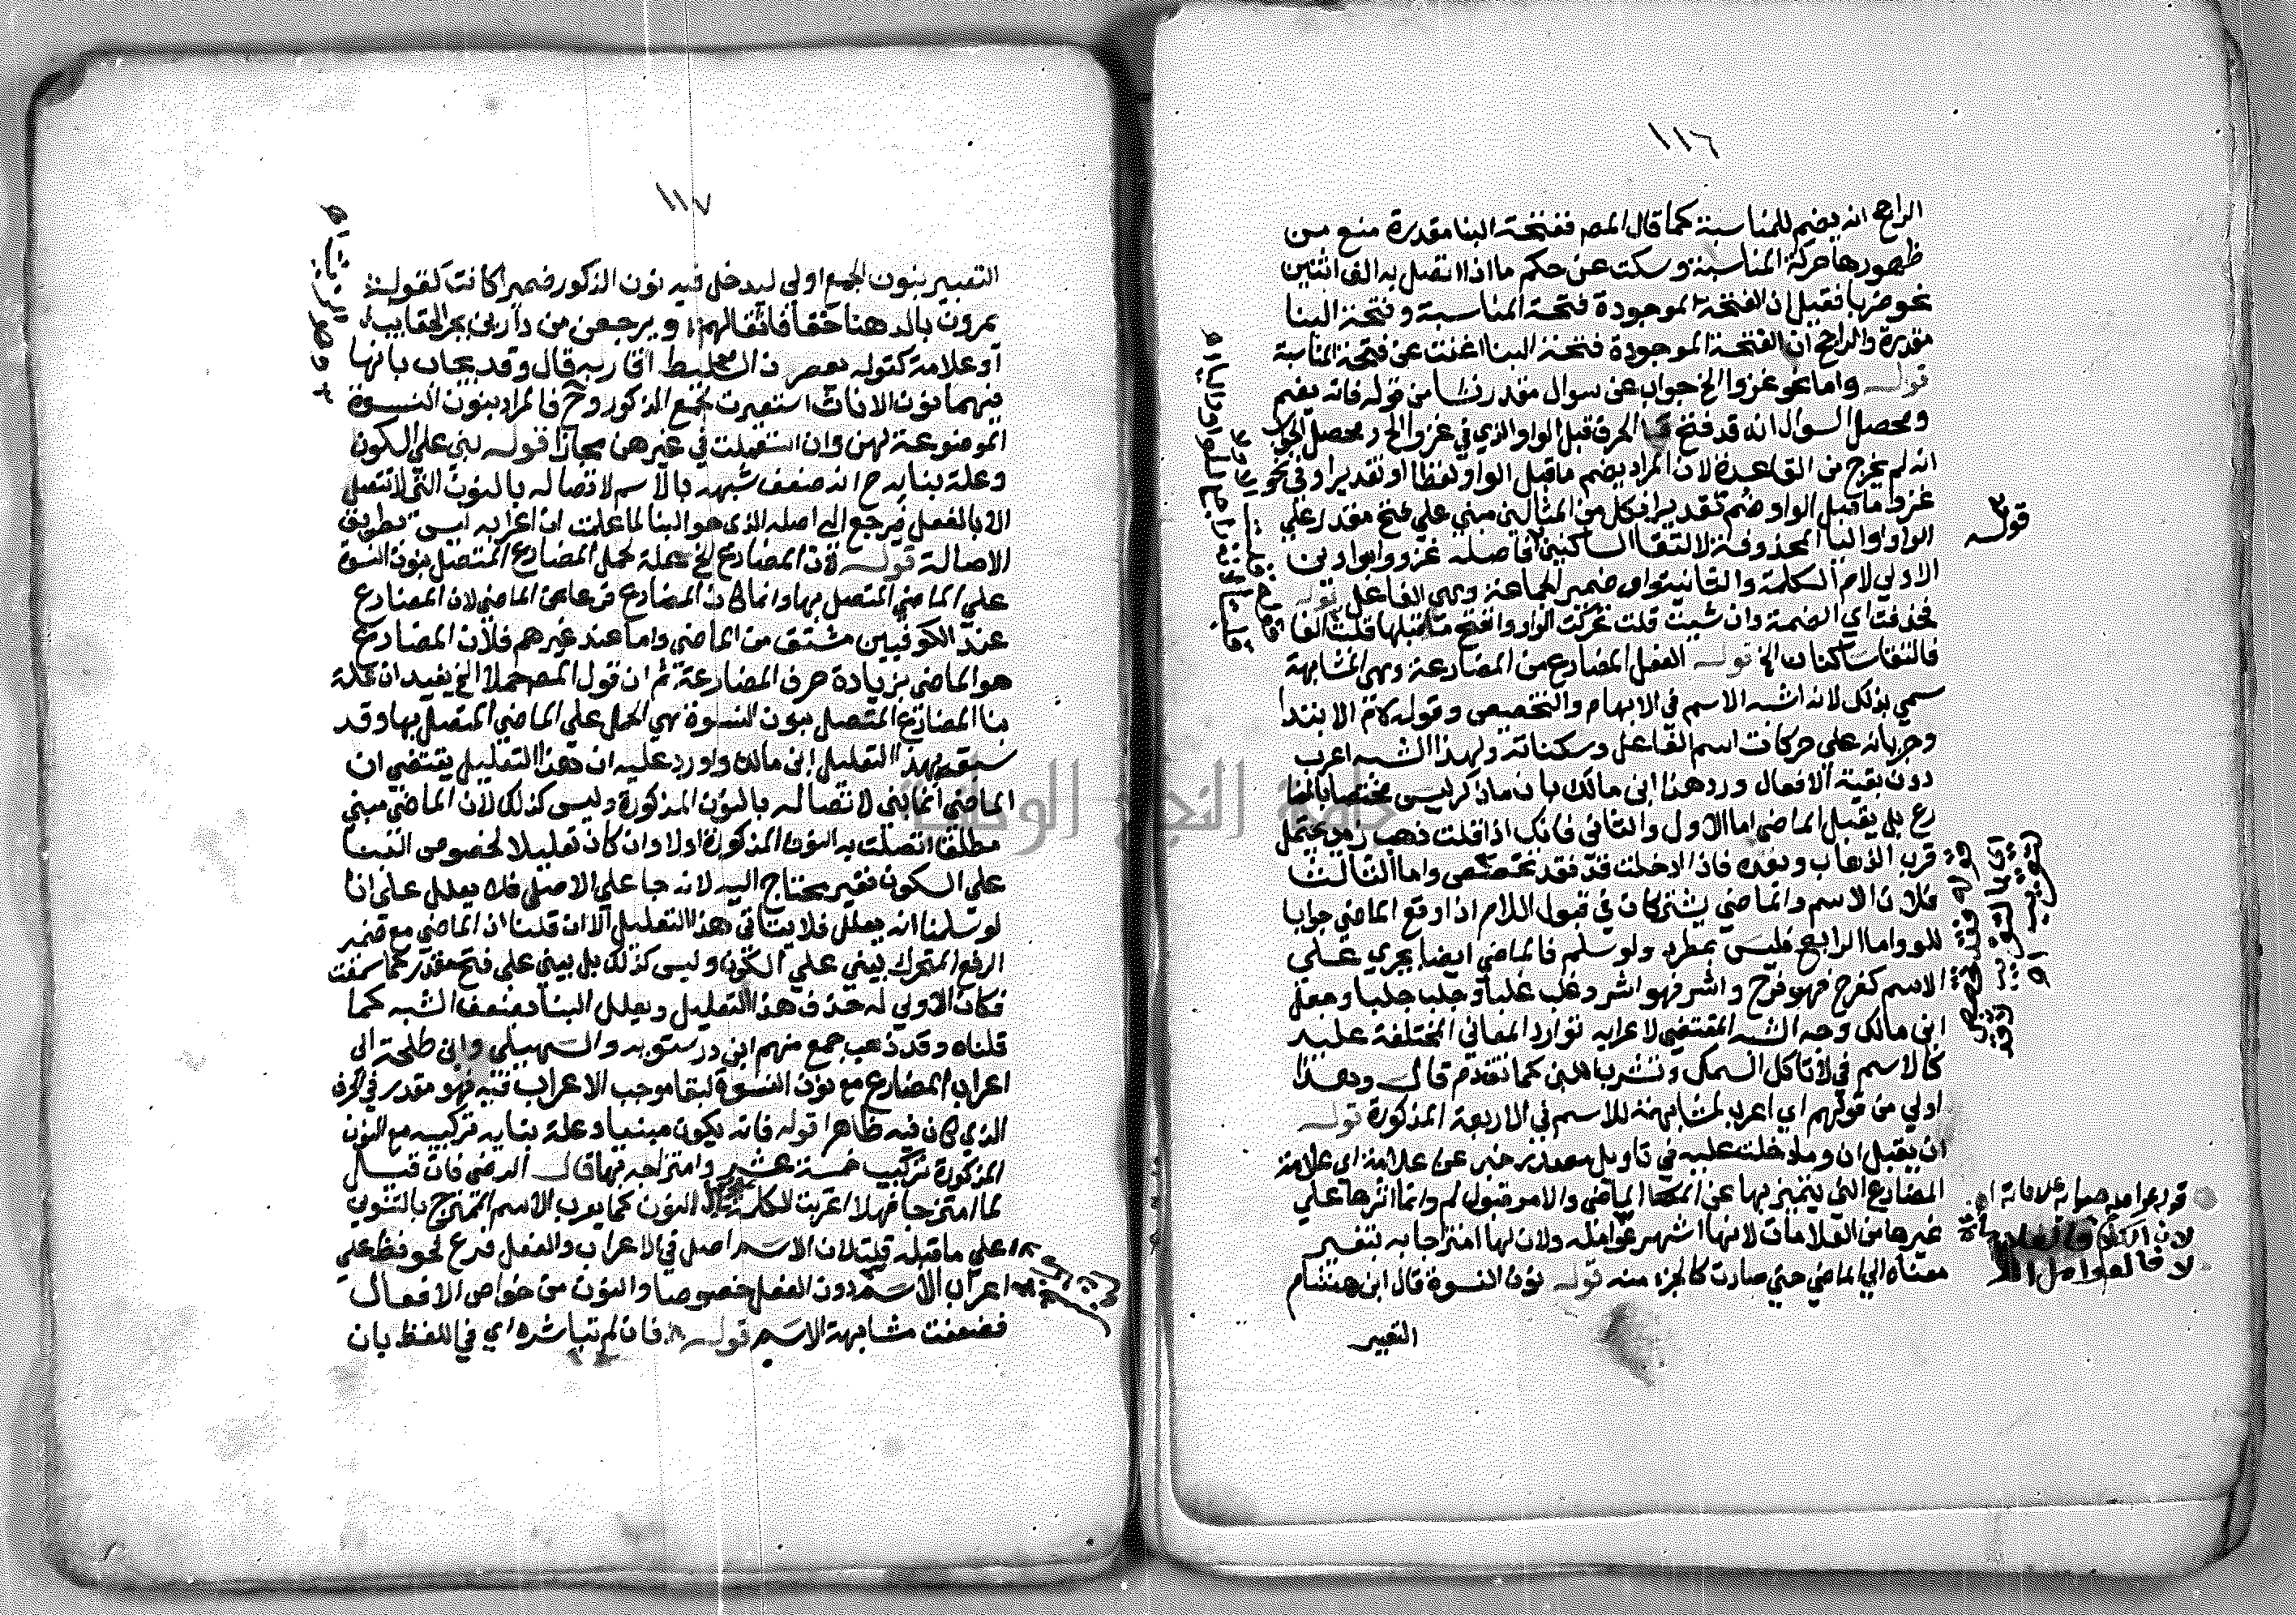 ١١٦
الراجح انه يضم للمناسبة كما قال المص ففتحة البنا مقدرة منع من
ظهورها حركة المناسبة وسكت عن حكم ما اذا اتصل به الف اثنين
نحو ضربا فقيل ان الفتحة الموجودة فتحة المناسبة وفتحة البنا
مقدرة والراجح ان الفتحة الموجودة فتحة البنا اغنت عن فتحة المناسبة
قوله واما نحو غزوا الخ جواب عن سوال مقدر نشا من قوله فانه يضم
ومحصل السوال انه قد فتح الحرف قبل الواو الذي في غزوا الخ ومحصل الجواب
انه لم يخرج من القاعدة لان المراد يضم ما قبل الواو لفظا او تقديرا وفي نحو
غزوا ما قبل الواو ضم تقديرا فكل من المثالين مبني علي فتح مقدر علي
الواو او اليا المحذوفة لالتقا الساكنين فاصله غزووا بواوين
الاولي لام الكلمة والثانية واو ضمير الجماعة وهي الفاعل قوله
فحذفت اي الضمة وان شيت قلت تحركت الواو وانفتح ما قبلها قلبت الفا
فالتقا ساكنان الخ قوله الفعل المضارع من المضارعة وهي المشابهة
سمي بذلك لانه اشبه الاسم في الابهام والتخصيص وقوله لام الابتدا
وجريانه علي حركات اسم الفاعل وسكناته ولهذا الشبه اعرب
دون بقية الافعال ورد هذا ابن مالك بان ما ذكر ليس مختصا بالمضا
رع بل يقبل الماضي اما الاول والثاني فانك اذا قلت ذهب زيد يحتمل
قرب الذهاب وبعده فاذا ادخلت قد فقد تخصص واما الثالث
فلان الاسم والماضي يشتركان في قبول اللام اذا وقع الماضي جوابا
للو واما الرابع فليس بمطرد ولو سلم فالماضي ايضا يجري علي
الاسم كفرح فهو فرح واشر فهو اشر وغلب غلبا وجلب جلبا وجعل
ابن مالك وجه الشبه المقتضي لاعرابه توارد المعاني المختلفة عليه
كالاسم في لا تاكل السمك وتشرب اللبن كما تقدم قال وهذا
اولي من قولهم اي اعرب لمشابهته للاسم في الاربعة المذكورة قوله
ان يقبل ان وما دخلت عليه في تاويل مصدر خبر عن علامة اي علامة
المضارع التي يتميز بها عن الماضي والامر قبول لم وانما اثرها علي
غيرها من العلامات لانها اشهر عوامله ولان لها امتزاجا به بتغيير
معناه الي الماضي حتي صارت كالجزء منه قوله نون النسوة قال ابن هشام
التعبير
قوله
١١٧
التعبير بنون الجمع اولي ليدخل فيه نون الذكور ضميرا كانت كقوله
يمرون بالدهنا خفافا عيابهم ويرجعن من دارين بجر الحقايب
او علامة كقوله يعصرن السليط اقاربه قال وقد يجاب بانها
فيهما نون الاناث استعيرت لجمع الذكور وح فالمراد بنون النسوة
الموضوعة لهن وان استعملت في غيرهن مجازا قوله بني علي السكون
وعلة بنايه ح انه ضعف شبهه بالاسم لاتصاله بالنون التي لا تتصل
الا بالفعل فرجع الي اصله الذي هو البنا لما علمت ان اعرابه ليس بطريق
الاصالة قوله لان المضارع الخ علة لحمل المضارع المتصل بنون النسوة
علي الماضي المتصل بها وانما كان المضارع فرعا عن الماضي لان المضارع
عند الكوفيين مشتق من الماضي واما عند غيرهم فلان المضارع
هو الماضي بزيادة حرف المضارعة ثم ان قول المص حملا الخ يفيد ان علة
بنا المضارع المتصل بنون النسوة هي الحمل علي الماضي المتصل بها وقد
سبقه بهذا التعليل ابن مالك واورد عليه ان هذا التعليل يقتضي ان
الماضي انما بني لاتصاله بالنون المذكورة وليس كذلك لان الماضي مبني
مطلقا اتصلت به النون المذكورة اولا وان كان تعليلا لخصوص البنا
علي السكون فغير محتاج اليه لانه جا علي الاصل فلا يعلل علي انا
لو سلمنا انه يعلل فلا يتاتي هذا التعليل الا ان قلنا ان الماضي مع ضمير
الرفع المتحرك بني علي السكون وليس كذلك بل بني علي فتح مقدر كما سمعت
فكان الاولي له حذف هذا التعليل ويعلل البنا بضعف الشبه كما
قلناه وقد ذهب جمع منهم ابن درستويه والسهيلي وابن طلحة الي
اعراب المضارع مع نون النسوة لبقا موجب الاعراب فيه فهو مقدر في الحرف
الذي كان فيه ظاهرا قوله فانه يكون مبنيا وعلة بنايه تركيبه مع النون
المذكورة تركيب خمسة عشر وامتزاجه بها قال الرضي فان قيل
لما امتزجا فهلا اعربت الكلمة علي النون كما يعرب الاسم الممتزج بالتنوين
علي ما قبله قلت لان الاسم اصل في الاعراب والفعل فرع فحوفظ علي
اعراب الاسم دون الفعل خصوصا والنون من خواص الافعال
فضعفت مشابهة الاسم قوله فان لم تباشره اي في اللفظ بان